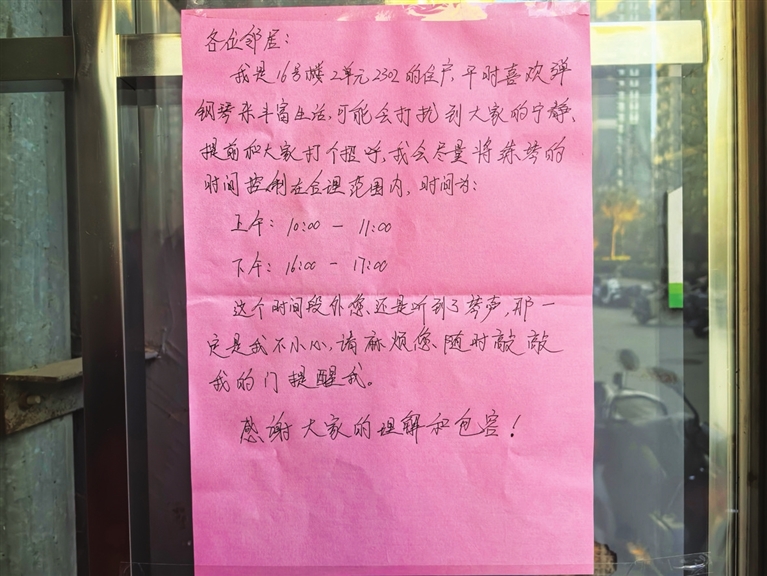 各位邻居：
我是16号楼2单元2302的住户，平时喜欢弹
钢琴来丰富生活，可能会打扰到大家的宁静、
提前和大家打个招呼，我会尽量将练琴的
时间控制在合理范围内，时间为：
上午：10:00 — 11:00
下午：16:00 — 17:00
这个时间段外您、还是听到了琴声，那一
定是我不小心，请麻烦您、随时敲敲
我的门提醒我。
感谢大家的理解和包容！